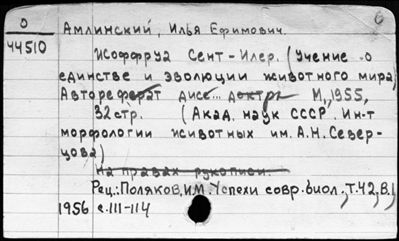 О
44510
6
Амлинский, Илья Ефимович.
Исоффруа Сент-Илер. (Учение о
единстве и эволюции животного мира)
Автореферат дисс... доктра М., 1955,
32 стр. (Акад. наук СССР. Ин-т
морфологии животных им. А.Н. Север-
цова)
На правах рукописи.
Рец.: Поляков, И.М. Успехи совр. биол., Т.42, В.1,
1956 с. 111-114